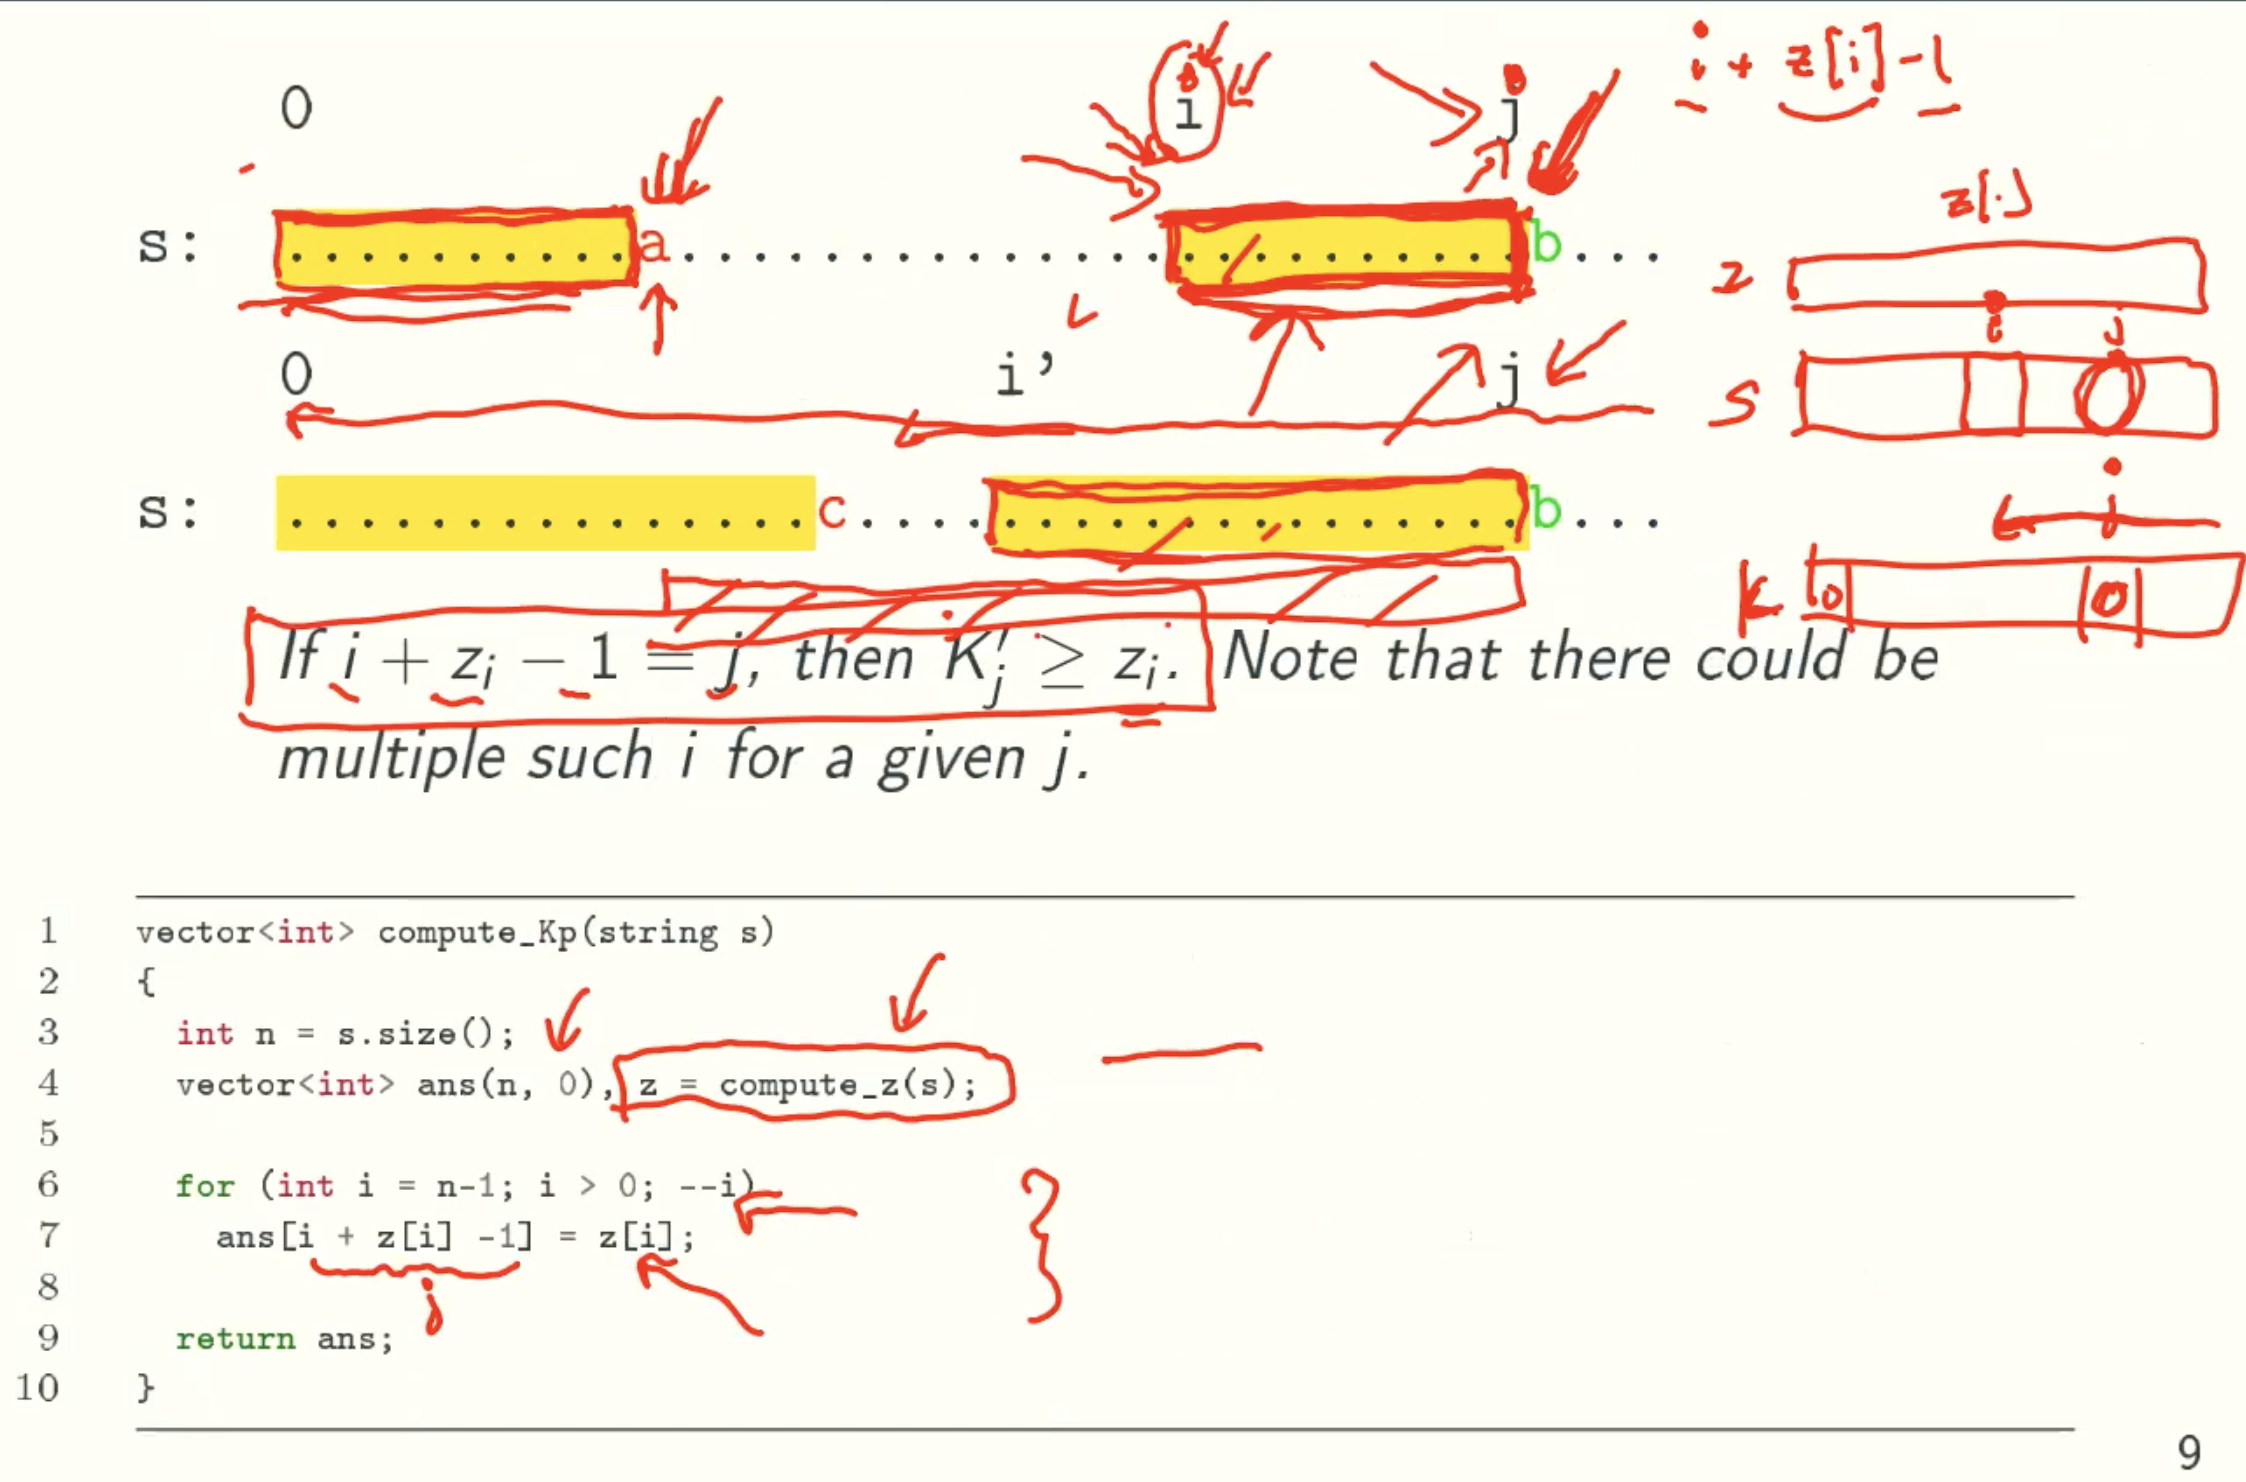 0 i j i + z[i] -1
z[.]
s: ..........a..............  ..........b...
z
i j
0 i’ j
s
s: ...............c.... ...............b...
j
k 0 0
If i + zᵢ − 1 = j, then K′ⱼ ≥ zᵢ. Note that there could be
multiple such i for a given j.
1 vector<int> compute_Kp(string s)
2 {
3 int n = s.size();
4 vector<int> ans(n, 0), z = compute_z(s);
5
6 for (int i = n-1; i > 0; --i)
7 ans[i + z[i] -1] = z[i];
8
j
9 return ans;
10 }
9